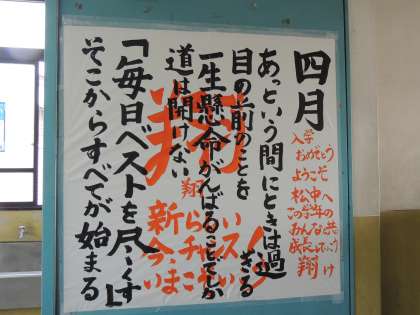 四月
あっという間にときは過ぎる
目の前のことを
一生懸命がんばることでしか
道は開けない
「毎日ベストを尽くす」
そこからすべてが始まる
入学
おめでとう
ようこそ
松中へ
この学年の
みんなと共
成長していこう
翔
翔
新